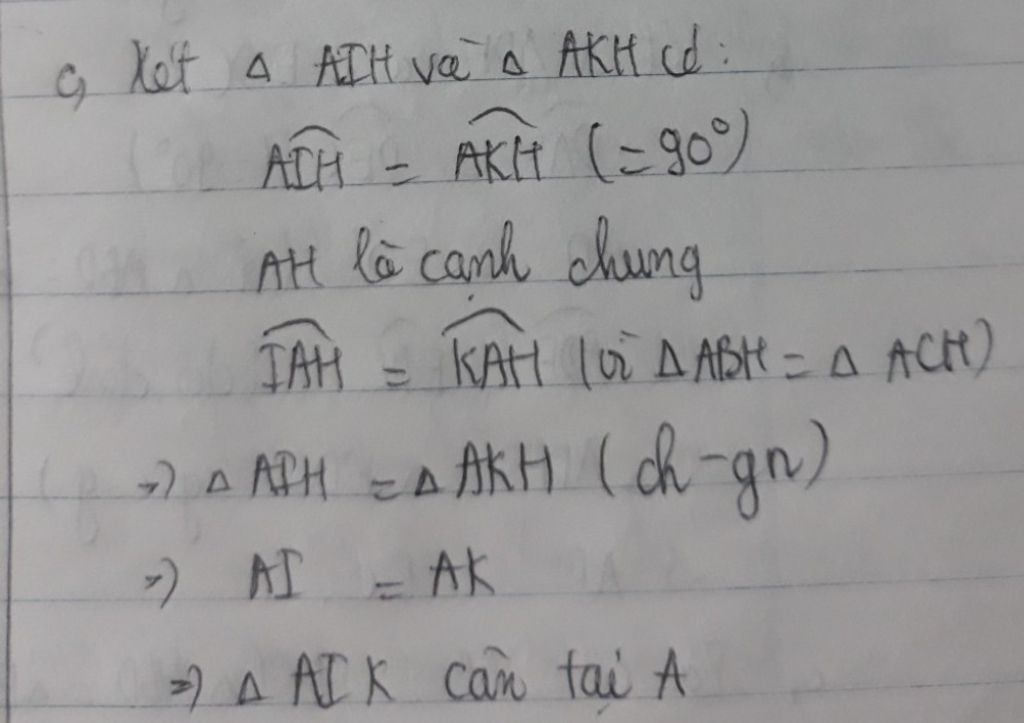 c, Xét Δ AIH và Δ AKH có:
$\widehat{AIH}$ = $\widehat{AKH}$ (=90°)
AH là cạnh chung
$\widehat{IAH}$ = $\widehat{KAH}$ (vì Δ ABH = Δ ACH)
=> Δ AIH = Δ AKH (ch-gn)
=> AI = AK
=> Δ AIK cân tại A